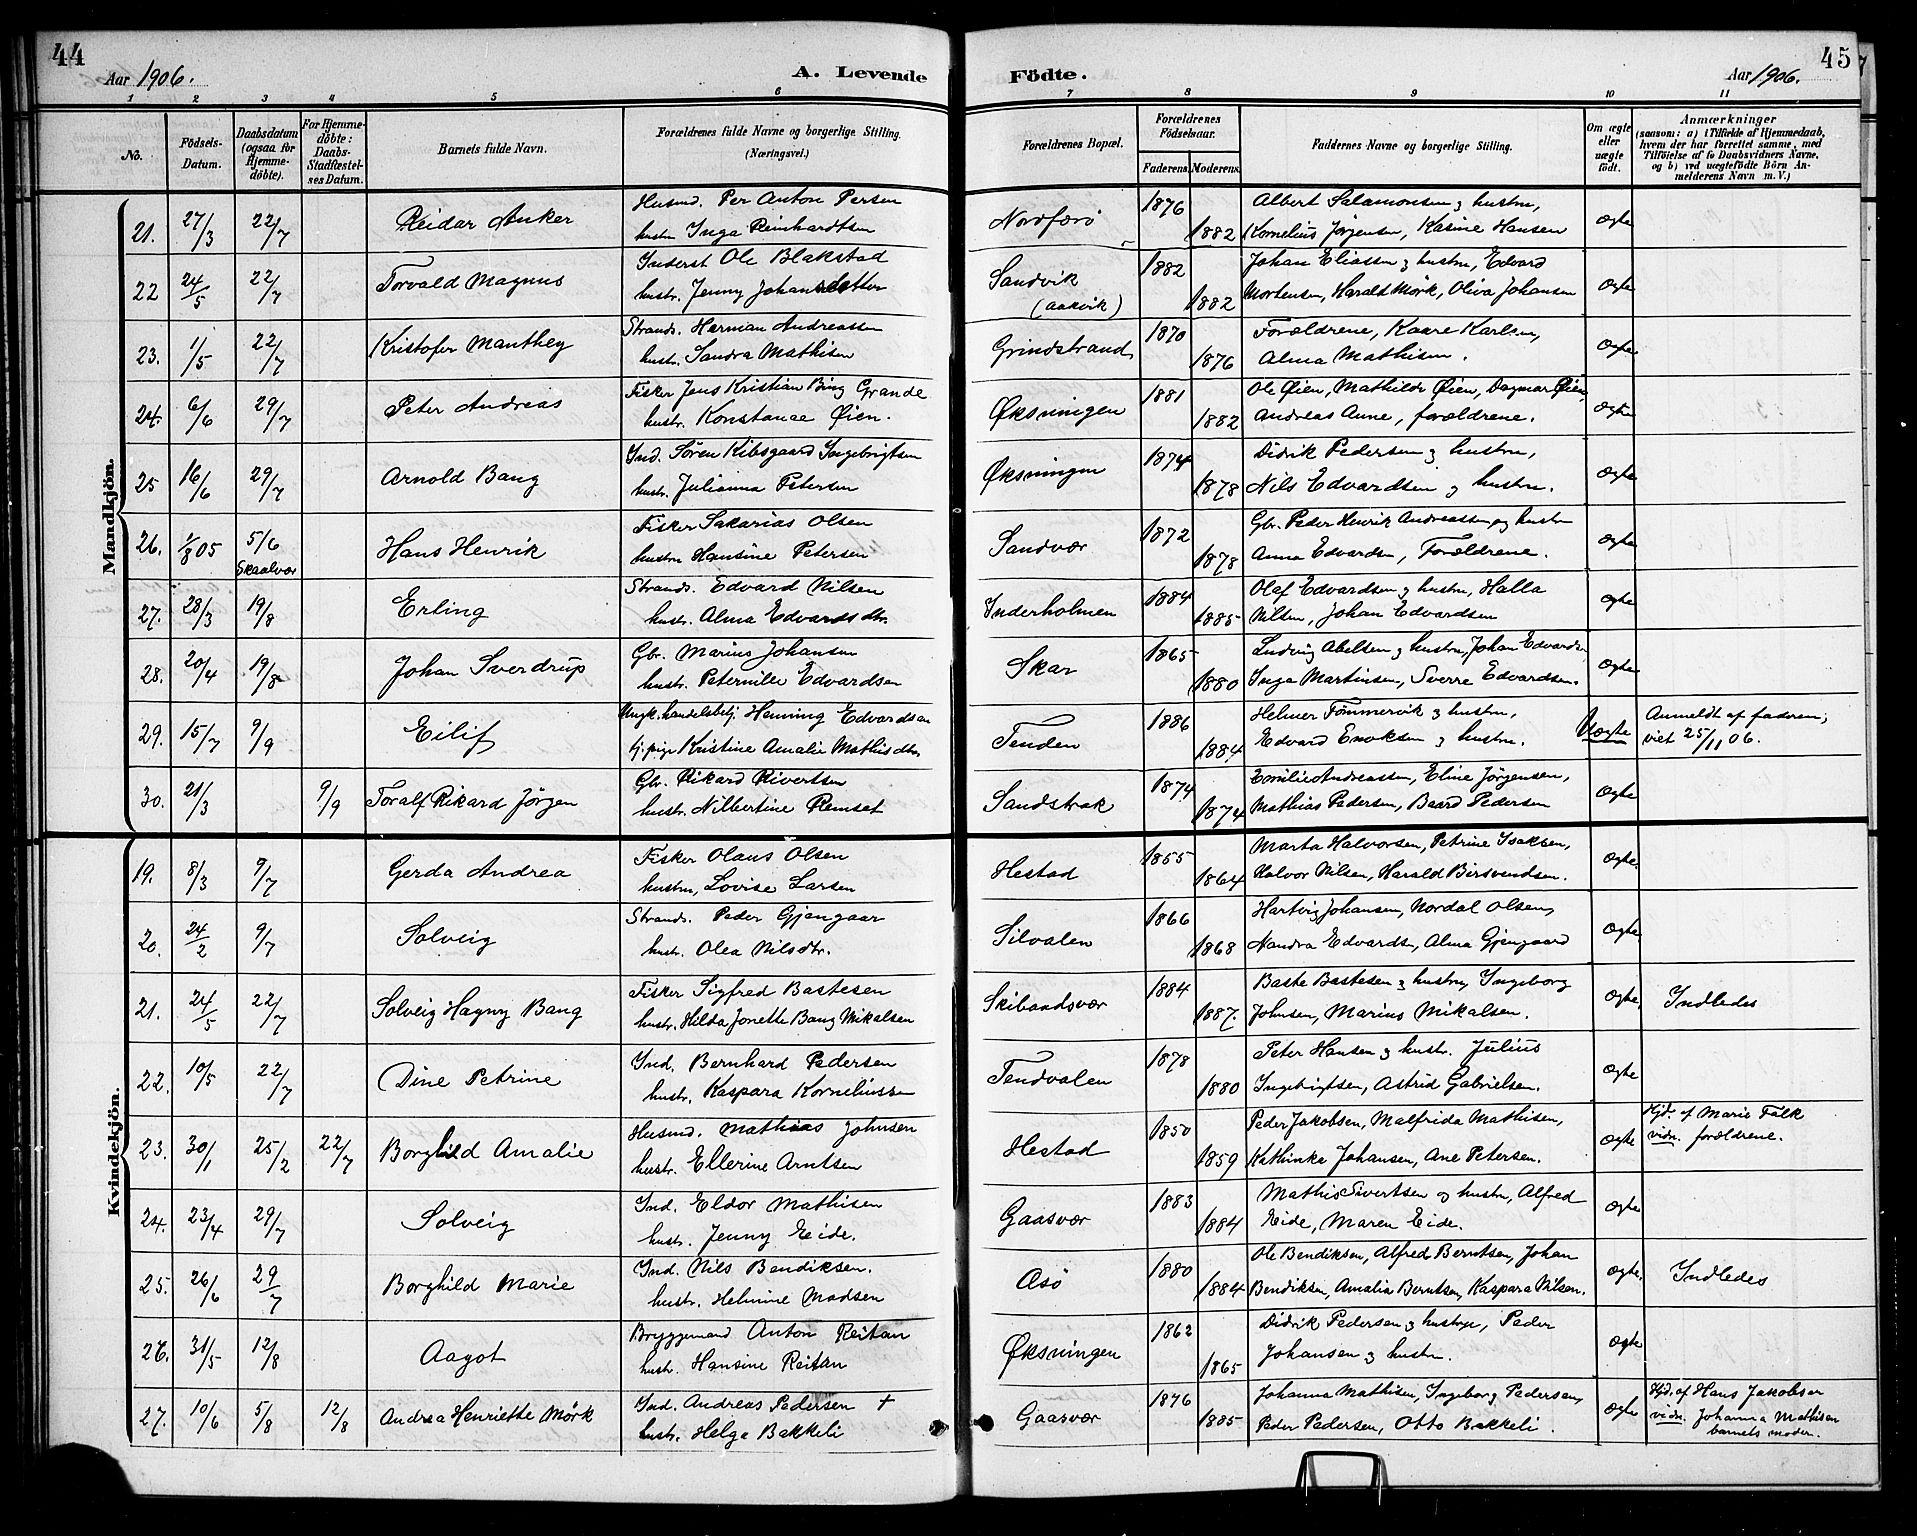 44
Aar 1906.
A. Levende
Födte.
Aar 1906.
45
1 2 3 4 5 6 7 8 9 10 11
No.
Födsels-Datum.
Daabsdatum (ogsaa for Hjemme-döbte).
For Hjemme-döbte: Daabs-Stadfæstel-ses Datum.
Barnets fulde Navn.
Forældrenes fulde Navne og borgerlige Stilling. (Næringsvei.)
Forældrenes Bopæl.
Forældrenes Födselsaar.
Faderens. Moderens.
Faddernes Navne og borgerlige Stilling.
Om ægte eller uægte födt.
Anmærkninger
(saasom: a) i Tilfælde af Hjemmedaab, hvem der har forrettet samme, med Tilföielse af to Daabsvidners Navne, og b) ved uægtefödte Börn An-melderens Navn m. V.)
Mandkjön.
21. 27/3 22/7 Reidar Anker Husmd. Per Anton Persen Nordfærö 1876 Albert Salamonsen & hustru,
hustr Inga Reinhardtsen 1882 Kornelius Jørgensen, Kasine Hansen ægte
22 24/5 22/7 Torvald Magnus Inderst Ole Blakstad Sandvik 1882 Johan Eliassen & hustru, Edvard
hustr. Jenny Johansdatter (aakvik) 1882 Mortensen, Harald Mørk, Oliva Johansen ægte
23. 1/5 22/7 Kristofer Manthey Strands. Herman Andreassen Grindstrand 1870 Forældrene, Kaare Karlsen,
hustr. Sandra Mathisen 1876 Alma Mathisen. ægte
24. 6/6 29/7 Peter Andreas Fisker Jens Kristian Bing Grande Øksningen 1881 Ole Øien, Mathilde Øien, Dagmar Øien
hustr. Konstance Øien. 1882 Andreas Anne, forældrene. ægte
25 16/6 29/7 Arnold Bang Ind. Sören Kibsgaard Ingebrigtsen Øksningen 1874 Didrik Pedersen & hustru,
hustr. Julianna Petersen 1878 Nils Edvardsen & hustru. ægte
26. 1/8 05 5/6 Skaalvær Hans Henrik Fisker Sakarias Olsen Sandvær 1872 Gbr. Peder Henrik Andreassen og hustru
hustru Hansine Petersen 1878 Anna Edvardsen, Forældrene. ægte
27. 28/3 19/8 Erling Strands. Edvard Nilsen Inderholmen 1884 Olaf Edvardsen & hustru, Halla
hustr. Alma Edvardsdtr. 1885 Nilsen, Johan Edvardsen ægte
28. 20/4 19/8 Johan Sverdrup Gbr. Marius Johansen Skar 1865 Ludvig Abelsen & hustru, Johan Edvardsen
hustr. Peternille Edvardsen 1880 Inga Martinsen, Sverre Edvardsen. ægte
29. 15/7 9/9 Eilif Ungk. handelsbetj. Henning Edvardsen Tenden 1886 Helmer Fömmervik & hustru, Anmeldt af faderen,
tj. pige Kristine Amalie Mathisdtr. 1884 Edvard Enoksen & hustru. Uægte viet 25/11 06.
30. 21/3 9/9 Toralf Rikard Jörgen Gbr. Rikard Sivertsen Sandstrak 1874 Emilie Andreassen, Eline Jörgensen,
hustr. Nilbertine Remset 1874 Mathias Pedersen, Baard Pedersen ægte
Kvindekjön.
19. 8/3 9/7 Gerda Andrea Fisker Olaus Olsen Hestad 1855 Marta Halvorsen, Petrine Isaksen,
hustru, Lovise Larsen 1864 Halvor Nilsen, Harald Birsvendsen. ægte
20. 24/2 9/7 Solveig Strands. Peder Gjengaar Silvalen 1866 Hartvig Johansen, Nordal Olsen,
hustr. Olea Nilsdtr. 1868 Nandra Edvardsen, Alma Gjengaard ægte
21. 24/5 22/7 Solveig Hagny Bang Fisker Sigfred Bastesen Skibaadsvær 1884 Baste Bastesen & hustru, Ingeborg
hustr. Hilda Jonette Bang Mikalsen 1887. Johnsen, Marius Mikalsen. ægte Indledes
22. 10/5 22/7 Dine Petrine Ind. Bernhard Pedersen Tendvalen 1878 Peter Hansen & hustr. Julius
hustr. Kaspara Korneliussen 1880 Ingebrigtsen, Astrid Gabrielsen. ægte
23. 30/1 25/2 22/7 Borghild Amalie Husmd. Mathias Johnsen Hestad 1850 Peder Jakobsen, Malfrida Mathisen, Hjd. af Marie Falk
hustr. Ellerine Arntsen 1859 Kathinka Johansen, Ane Petersen. ægte vidn. forældrene.
24. 23/4 29/7 Solveig Ind. Eldor Mathisen Gaasvær 1883 Mathis Sivertsen og hustru, Alfred
hustr. Jenny Eide. 1884 Eide, Maren Eide. ægte
25. 26/6 29/7 Borghild Marie Ind. Nils Bendiksen. Asö 1880 Ole Bendiksen, Alfred Berntsen, Johan
hustr. Helmine Madsen 1884 Bendiksen, Amalia Berntsen, Kaspara Nilsen. ægte. Indledes
26. 31/5 12/8 Aagot Bryggemand Anton Reitan Øksningen 1862 Didrik Pedersen & hustru, Peder
hustr. Hansine Reitan 1865 Johansen & hustru. ægte
27. 10/6 5/8 12/8 Andrea Henriette Mörk Ind. Andreas Pedersen + Gaasvær 1876 Johanna Mathisen, Ingeborg Pedersen, Hjd. af Hans Jakobsen
hustr. Helga Bakkeli 1885 Peder Pedersen, Otto Bakkeli. ægte vidn. Johanna Mathisen
barnets moder.